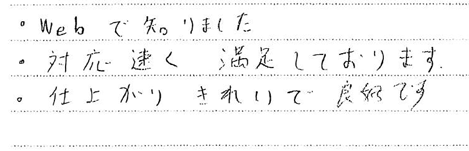 ・Webで知りました
・対応速く 満足しております.
・仕上がり きれいで 良好です